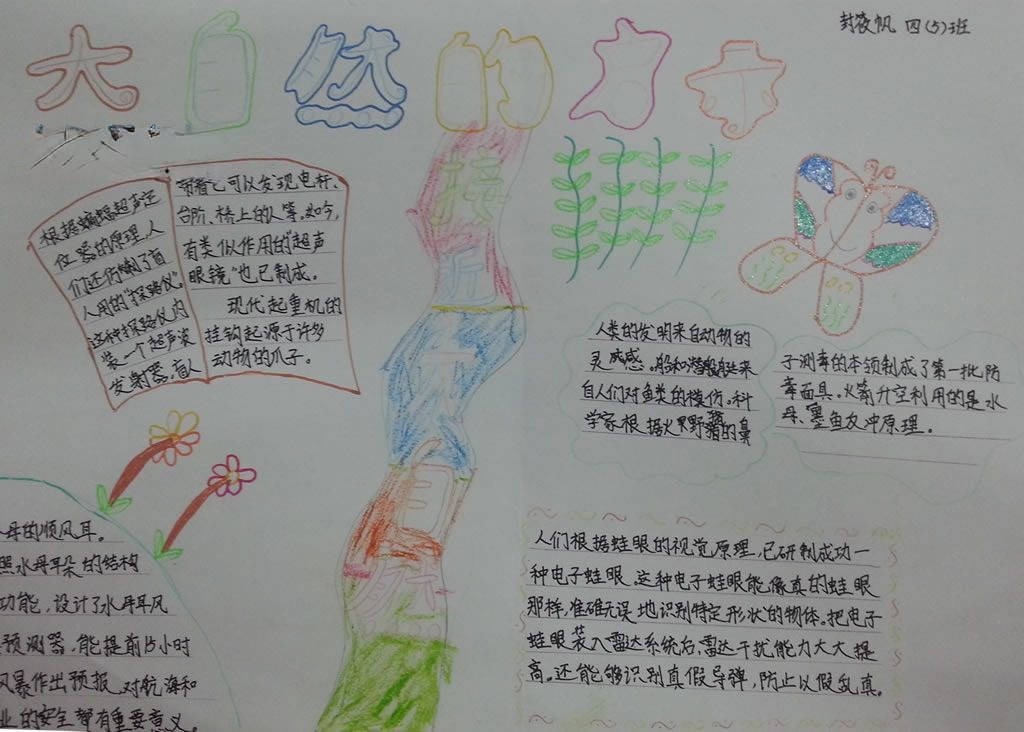 封筱帆 四(5)班
大自然的启示
接近大自然
根据蝙蝠超声定
位器的原理,人
们还仿制了盲
人用的“探路仪”。
这种探路仪内
装一个超声波
发射器,盲人
带着它可以发现电杆、
台阶、桥上的人等。如今,
有类似作用的“超声
眼镜”也已制成。
现代起重机的
挂钩起源于许多
动物的爪子。
人类的发明来自动物的
灵感。船和潜艇来
自人们对鱼类的模仿。科
学家根据火野猪的鼻
子测毒的本领制成了第一批防
毒面具。火箭升空利用的是水
母、墨鱼反冲原理。
母的顺风耳。
照水母耳朵的结构
功能,设计了水母耳风
预测器,能提前15小时
风暴作出预报,对航海和
业的安全都有重要意义。
人们根据蛙眼的视觉原理,已研制成功一
种电子蛙眼。这种电子蛙眼能像真的蛙眼
那样,准确无误地识别特定形状的物体。把电子
蛙眼装入雷达系统后,雷达干扰能力大大提
高。还能够识别真假导弹,防止以假乱真。